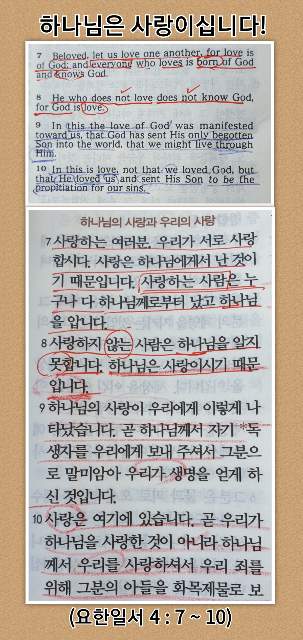 하나님은 사랑이십니다!
7 Beloved, let us love one another, for love is
of God; and everyone who loves is born of God
and knows God.
8 He who does not love does not know God,
for God is love.
9 In this the love of God was manifested
toward us, that God has sent His only begotten
Son into the world, that we might live through
Him.
10 In this is love, not that we loved God, but
that He loved us and sent His Son to be the
propitiation for our sins.
하나님의 사랑과 우리의 사랑
7 사랑하는 여러분, 우리가 서로 사랑
합시다. 사랑은 하나님에게서 난 것이
기 때문입니다. 사랑하는 사람은 누
구나 다 하나님께로부터 났고 하나님
을 압니다.
8 사랑하지 않는 사람은 하나님을 알지
못합니다. 하나님은 사랑이시기 때문
입니다.
9 하나님의 사랑이 우리에게 이렇게 나
타났습니다. 곧 하나님께서 자기 *독
생자를 우리에게 보내 주셔서 그분으
로 말미암아 우리가 생명을 얻게 하
신 것입니다.
10 사랑은 여기에 있습니다. 곧 우리가
하나님을 사랑한 것이 아니라 하나님
께서 우리를 사랑하셔서 우리 죄를
위해 그분의 아들을 화목제물로 보
(요한일서 4 : 7 ~ 10)